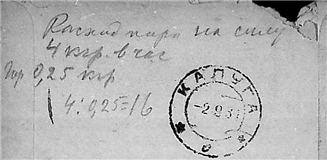 Расход пара на силу
4 кгр. в час
при 0,25 кгр
4:0,25=16
КАЛУГА
-2.9.3